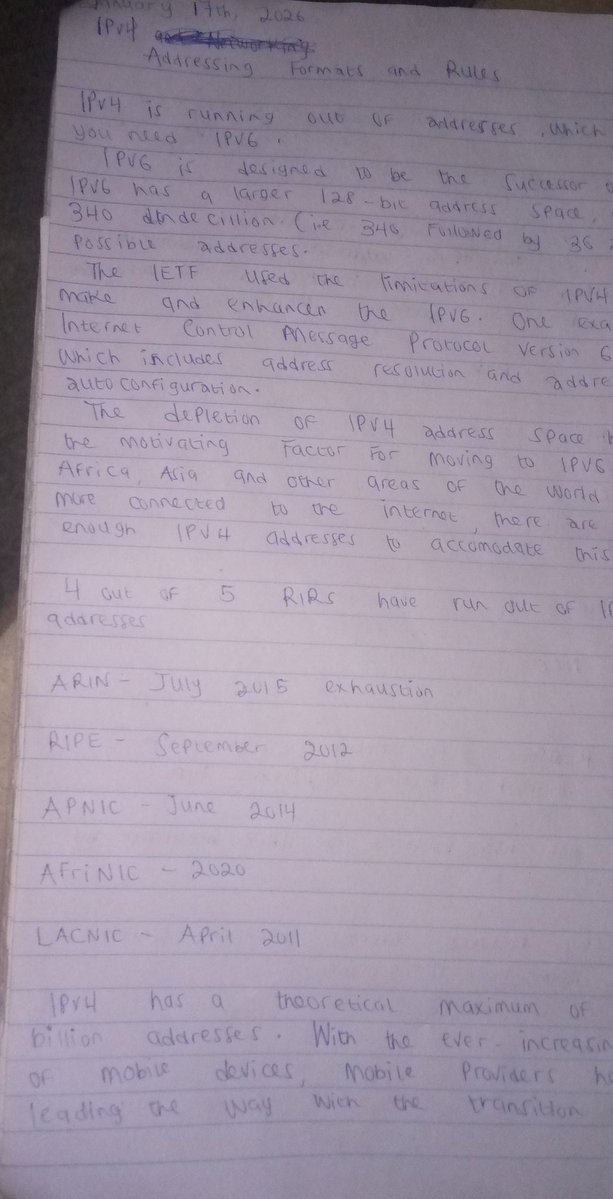 January 17th, 2026
IPv4
Addressing Formats and Rules
IPv4 is running out of addresses, which
you need IPV6.
IPV6 is designed to be the successor
IPV6 has a larger 128-bit address space,
340 undecillion. (i.e 340, followed by 36
possible addresses.
The IETF used the limitations of IPV4
make and enhances the IPV6. One exa
Internet Control Message Protocol version 6
which includes address resolution and addre
autoconfiguration.
The depletion of IPV4 address space
the motivating factor for moving to IPV6
Africa, Asia and other areas of the world
more connected to the internet, there are
enough IPV4 addresses to accomodate this
4 out of 5 RIRs have run out of IP
addresses
ARIN - July 2015 exhaustion
RIPE - September 2012
APNIC - June 2014
AFriNIC - 2020
LACNIC - April 2011
IPv4 has a theoretical maximum of
billion addresses. With the ever-increasin
of mobile devices, mobile providers ha
leading the way with the transition